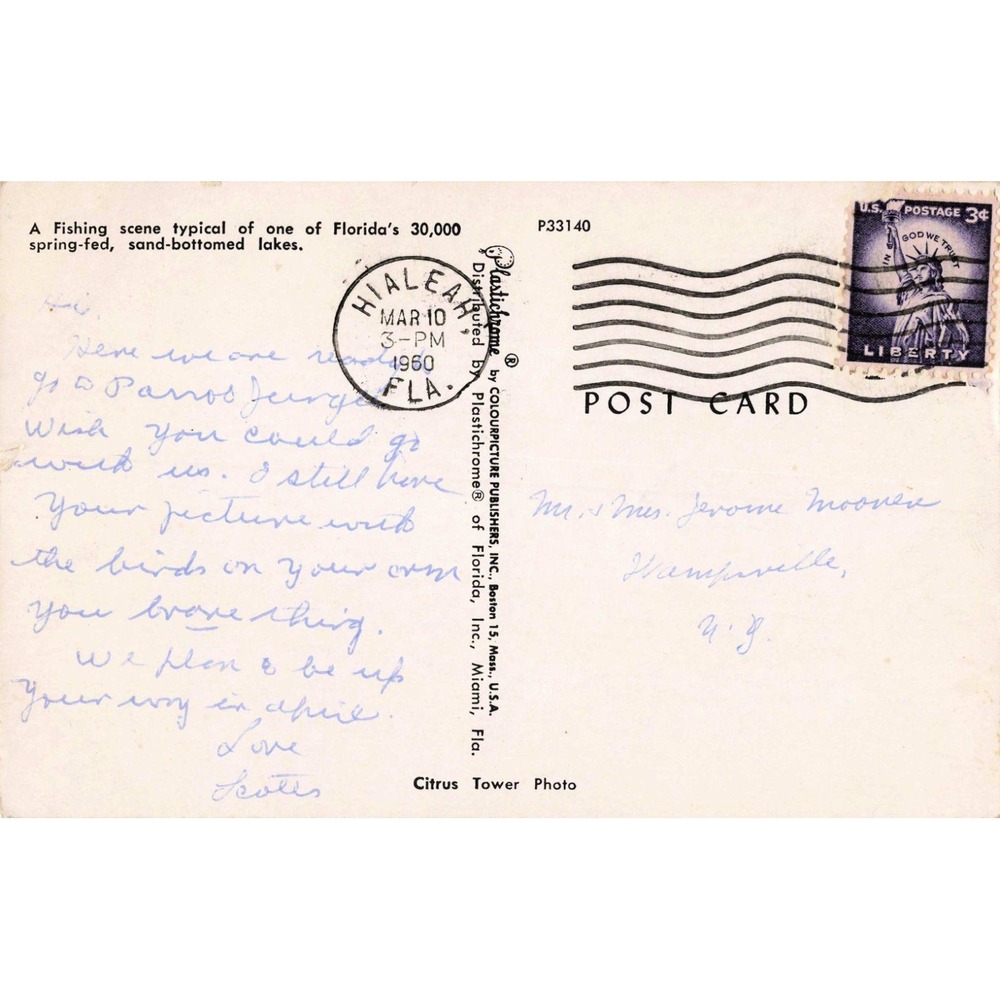 A Fishing scene typical of one of Florida's 30,000
spring-fed, sand-bottomed lakes.
P33140
U.S. POSTAGE 3¢
IN GOD WE TRUST
LIBERTY
HIALEAH,
MAR 10
3-PM
1960
FLA.
POST CARD
Plastichrome ® by COLOURPICTURE PUBLISHERS, INC., Boston 15, Mass., U.S.A.
Distributed by Plastichrome® of Florida, Inc., Miami, Fla.
Hi,
Here we are ready
go to Parrot Jungle
Wish you could go
with us. I still have
your picture with
the birds on your arm
you brave thing.
We plan to be up
your way in April.
Love
Mr. & Mrs. Jerome
Wampsville,
N.Y.
Citrus Tower Photo